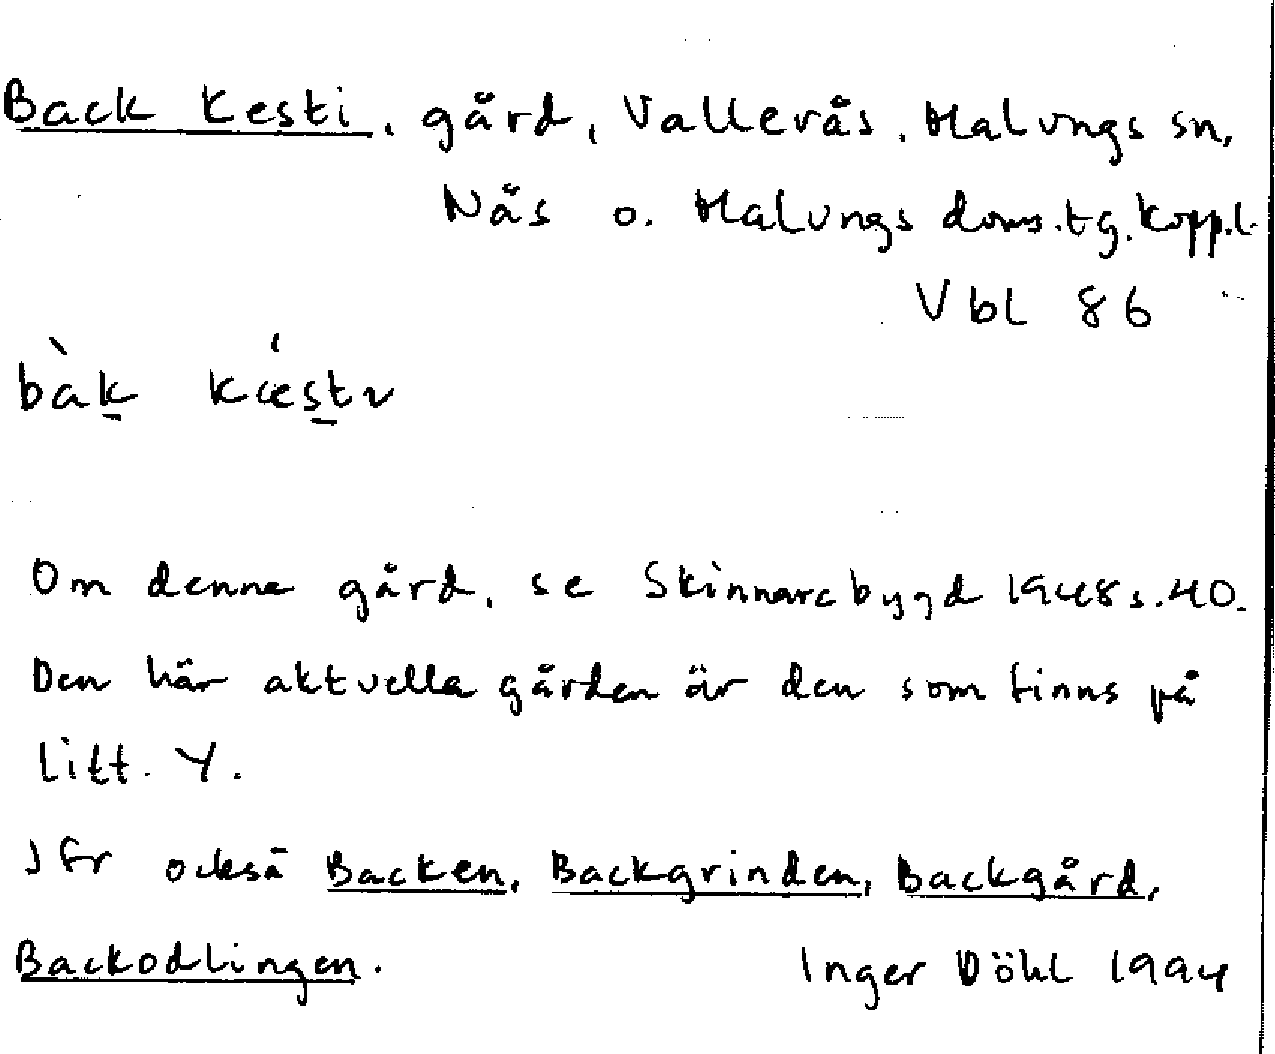 Back Kesti, gård, Vallerås, Malungs sn,
Nås o. Malungs doms.tg. Kopp.l.
Vbl 86
bàk̠ kǽs̠tɩ
Om denna gård, se Skinnarebygd 1948 s. 40.
Den här aktuella gården är den som finns på
litt. Y.
Jfr också Backen, Backgrinden, Backgård,
Backodlingen. Inger Döhl 1994